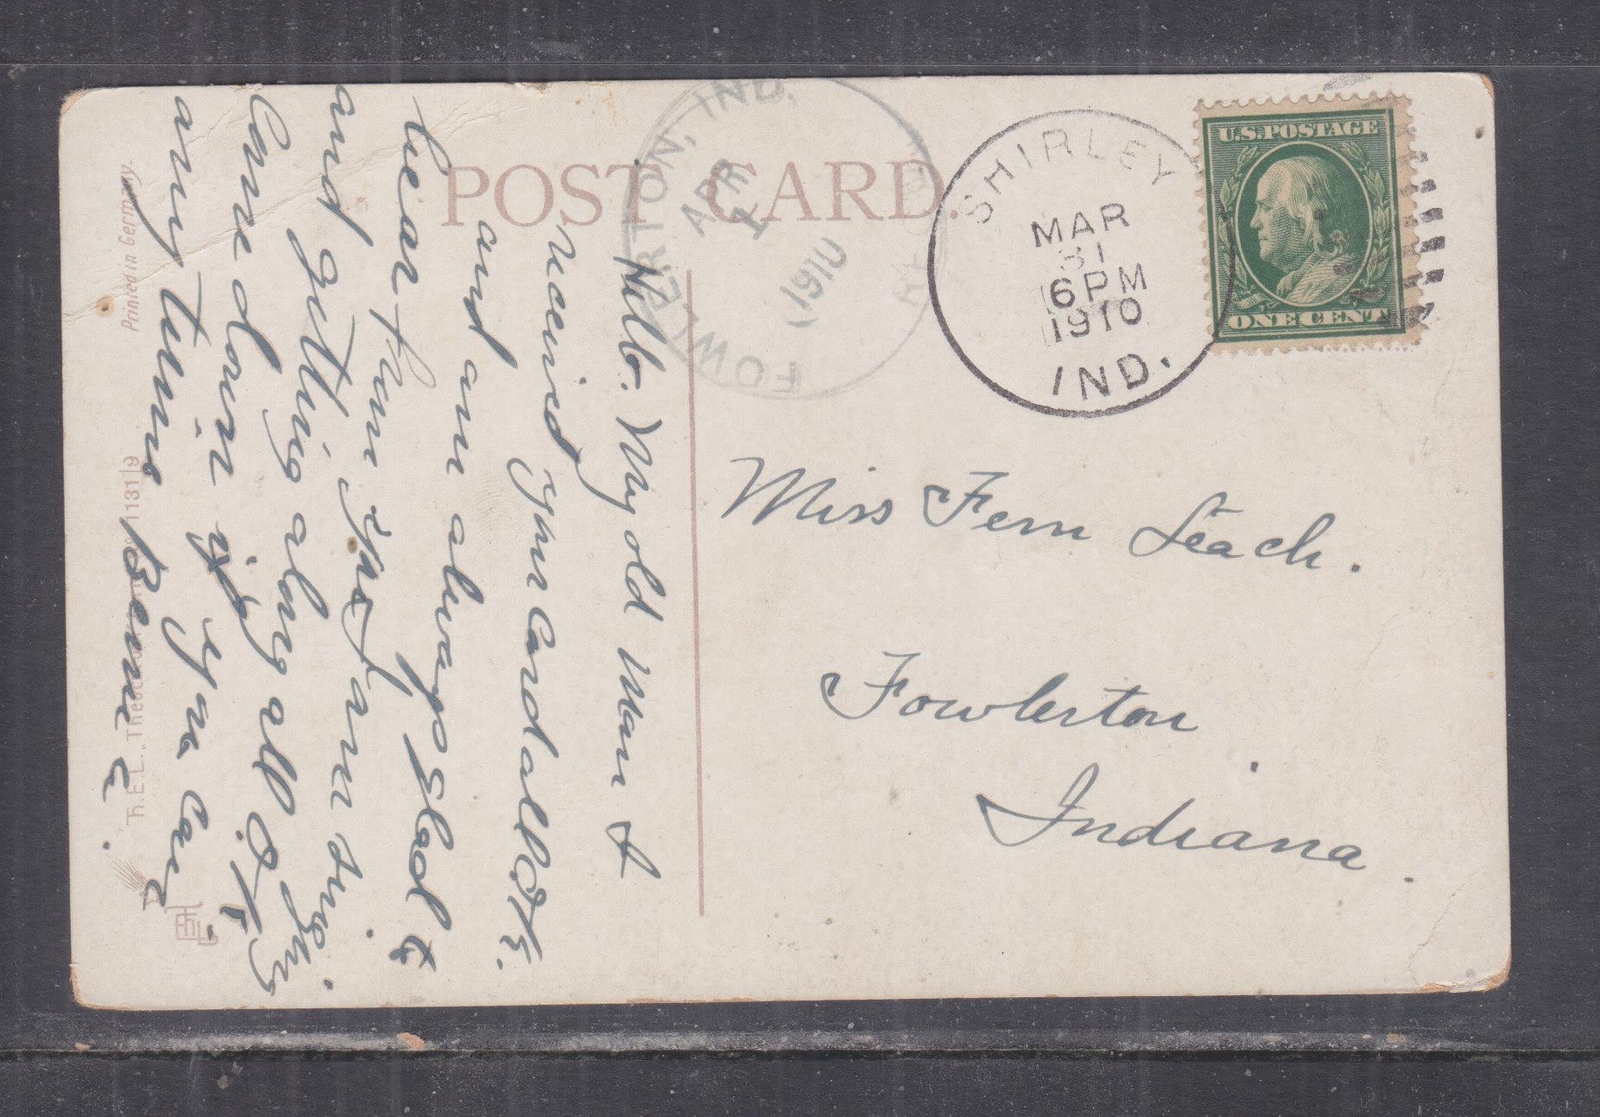 POST CARD.
Printed in Germany.
T.E.L.
1131|9
FOWLERTON, IND.
APR
1
1910
SHIRLEY
MAR
31
6 PM
1910
IND.
U.S. POSTAGE
ONE CENT
Miss Fern Leach.
Fowlerton
Indiana
Hello. My old man I
received your card all O.K.
and am always glad to
hear from you. I am singing
and getting along all O.K.
Come down if you can
any time